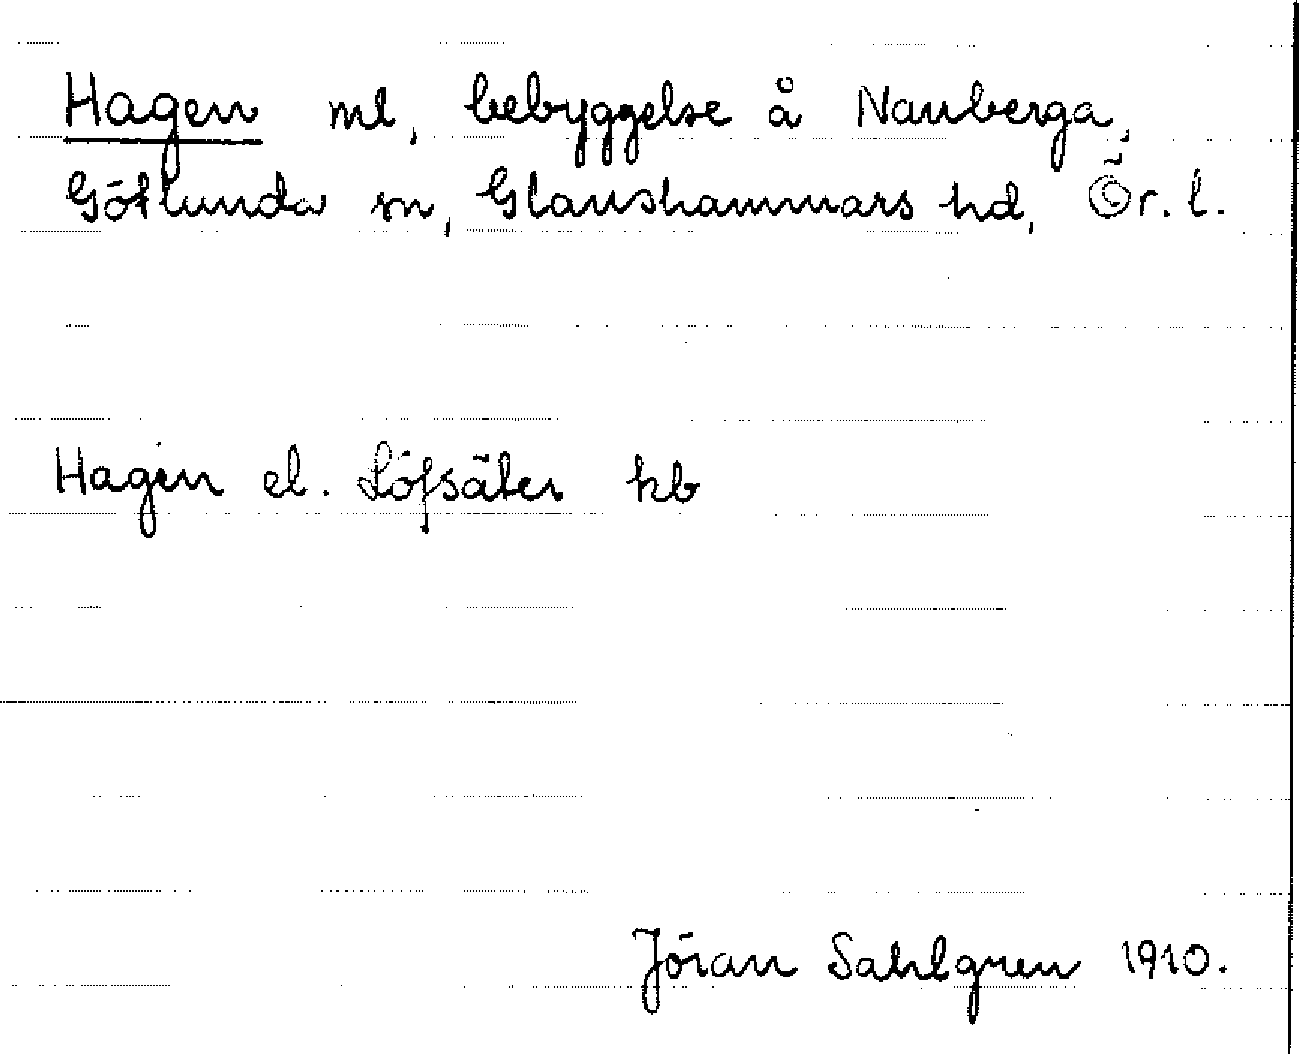 Hagen ml, bebyggelse å Nauberga,
Götlunda sn, Glanshammars hd, Ör. l.
Hagen el. Löfsäter kb
Jöran Sahlgren 1910.